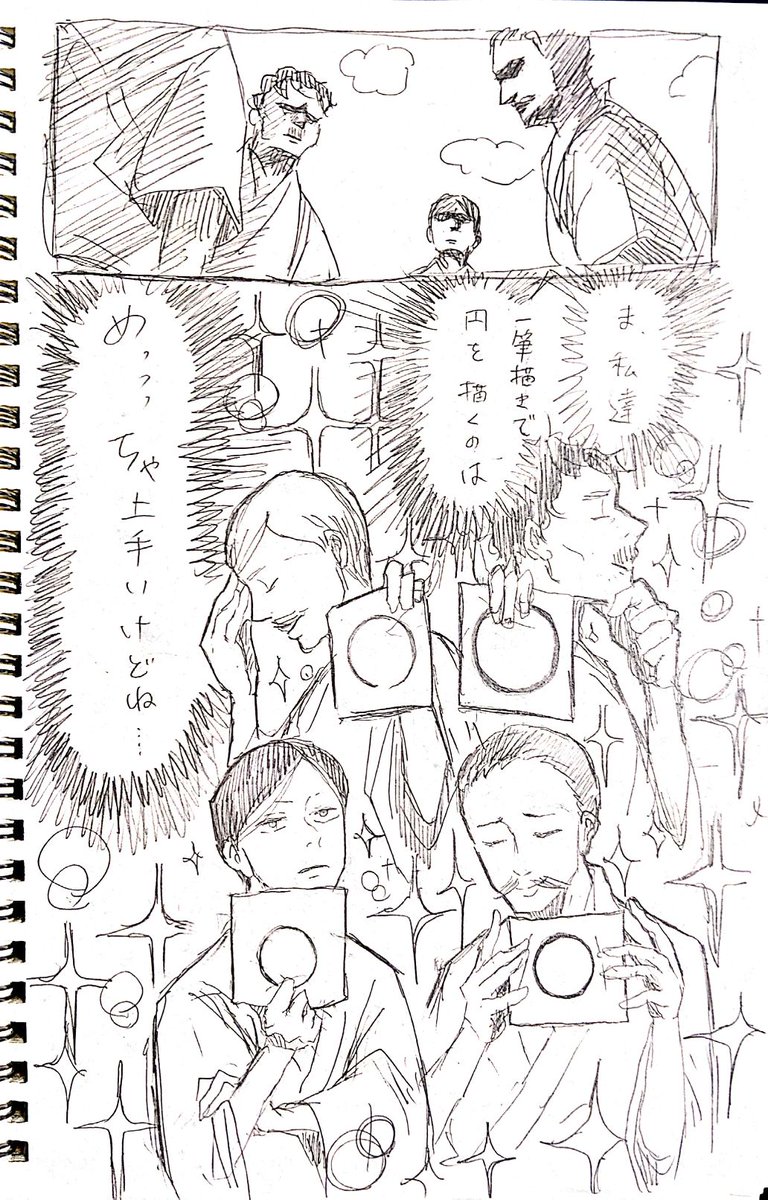 ま、私達
一筆描きで
円を描くのは
めっっっ
ちゃ上手いけどね…